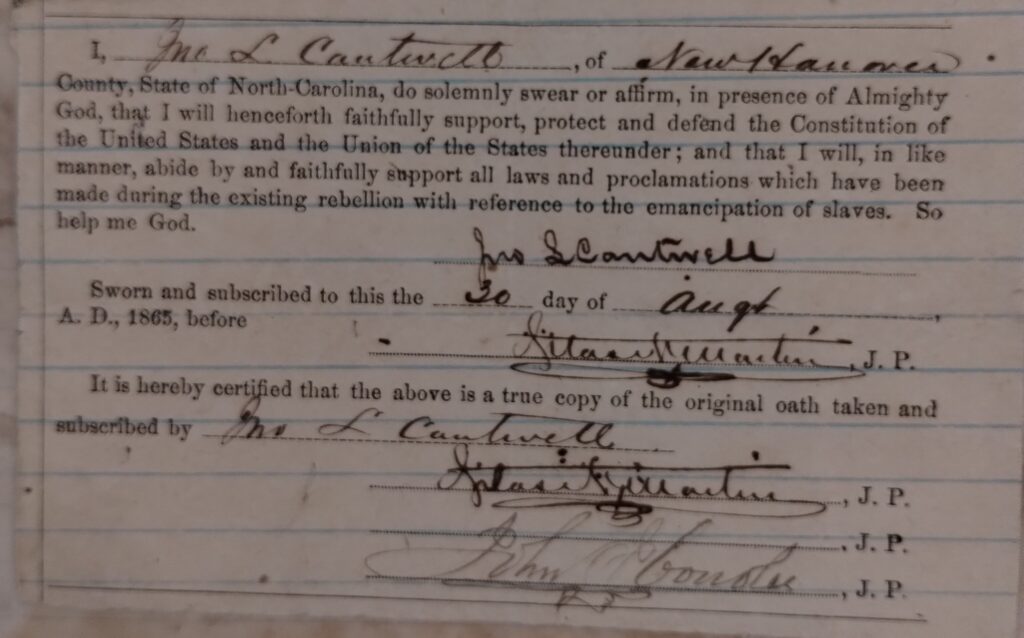 I, Jno L Cantwell, of New Hanover
County, State of North-Carolina, do solemnly swear or affirm, in presence of Almighty
God, that I will henceforth faithfully support, protect and defend the Constitution of
the United States and the Union of the States thereunder; and that I will, in like
manner, abide by and faithfully support all laws and proclamations which have been
made during the existing rebellion with reference to the emancipation of slaves. So
help me God.
Jno L Cantwell
Sworn and subscribed to this the 30 day of Augt,
A. D., 1865, before
Martin, J. P.
It is hereby certified that the above is a true copy of the original oath taken and
subscribed by Jno L Cantwell
Martin, J. P.
, J. P.
John, J. P.